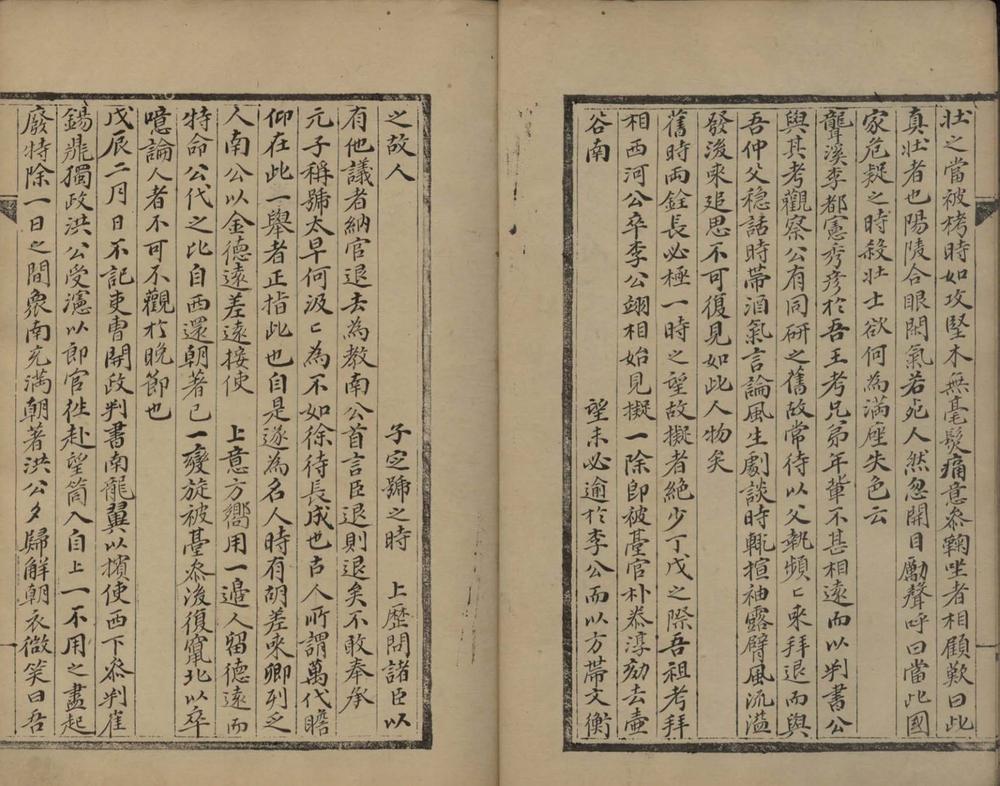 壯之當被栲時如攻堅木無毫髮痛意叅鞫坐者相顧歎曰此
真壯者也陽陵合眼閑氣若死人然忽開目勵聲呼曰當此國
家危疑之時殺壯士欲何為滿座失色云
聾溪李都憲秀彦於吾王考兄弟年輩不甚相遠而以判書公
與其考觀察公有同研之舊故常待以父執頻〻來拜退而與
吾仲父穩話時帶酒氣言論風生劇談時輒揎袖露臂風流溢
發後來追思不可復見如此人物矣
舊時兩銓長必極一時之望故擬者絶少丁戊之際吾祖考拜
相西河公卒李公翊相始見擬一除卽被臺官朴泰淳劾去壺
谷南　　　　望未必逾於李公而以方帶文衡
之故人　　　　　子定號之時　上歷問諸臣以
有他議者納官退去為教南公首言臣退則退矣不敢奉承
元子稱號太早何汲〻為不如徐待長成也古人所謂萬代瞻
仰在此一舉者正指此也自是遂為名人時有胡差來卿列乏
人南公以金德遠差遠接使　上意方嚮用一邊人留德遠而
特命公代之比自西還朝著已一變旋被臺叅後復竄北以卒
噫論人者不可不觀於晚節也
戊辰二月日不記吏曹開政判書南龍翼以擯使西下叅判崔
錫鼎獨政洪公受瀗以郎官徃赴望筒入自上一不用之盡起
廢特除一日之間象南充滿朝著洪公夕歸解朝衣微笑曰吾